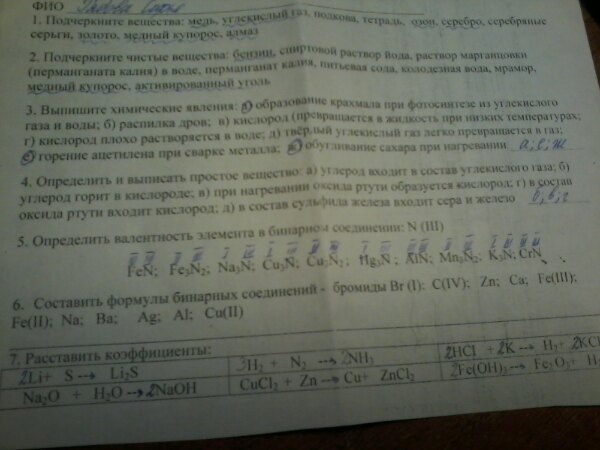 ФИО
1. Подчеркните вещества: медь, углекислый газ, подкова, тетрадь, озон, серебро, серебряные
серьги, золото, медный купорос, алмаз
2. Подчеркните чистые вещества: бензин, спиртовой раствор йода, раствор марганцовки
(перманганата калия) в воде, перманганат калия, питьевая сода, колодезная вода, мрамор,
медный купорос, активированный уголь
3. Выпишите химические явления: а) образование крахмала при фотосинтезе из углекислого
газа и воды; б) распилка дров; в) кислород (превращается в жидкость при низких температурах;
г) кислород плохо растворяется в воде; д) твёрдый углекислый газ легко превращается в газ;
е) горение ацетилена при сварке металла; ж) обугливание сахара при нагревании. а, е, ж
4. Определить и выписать простое вещество: а) углерод входит в состав углекислого газа; б)
углерод горит в кислороде; в) при нагревании оксида ртути образуется кислород; г) в состав
оксида ртути входит кислород; д) в состав сульфида железа входит сера и железо б, в, г
5. Определить валентность элемента в бинарном соединении: N (III)
FeN; Fe3N2; Na3N; Cu3N; Cu3N2; Hg3N; AlN; Mn3N2; K3N; CrN
6. Составить формулы бинарных соединений - бромиды Br (I): C(IV); Zn; Ca; Fe(III);
Fe(II); Na; Ba; Ag; Al; Cu(II)
7. Расставить коэффициенты:
2Li + S → Li2S 3H2 + N2 → 2NH3 2HCl + 2K → H2 + 2KCl
Na2O + H2O → 2NaOH CuCl2 + Zn → Cu + ZnCl2 2Fe(OH)3 → Fe2O3 +